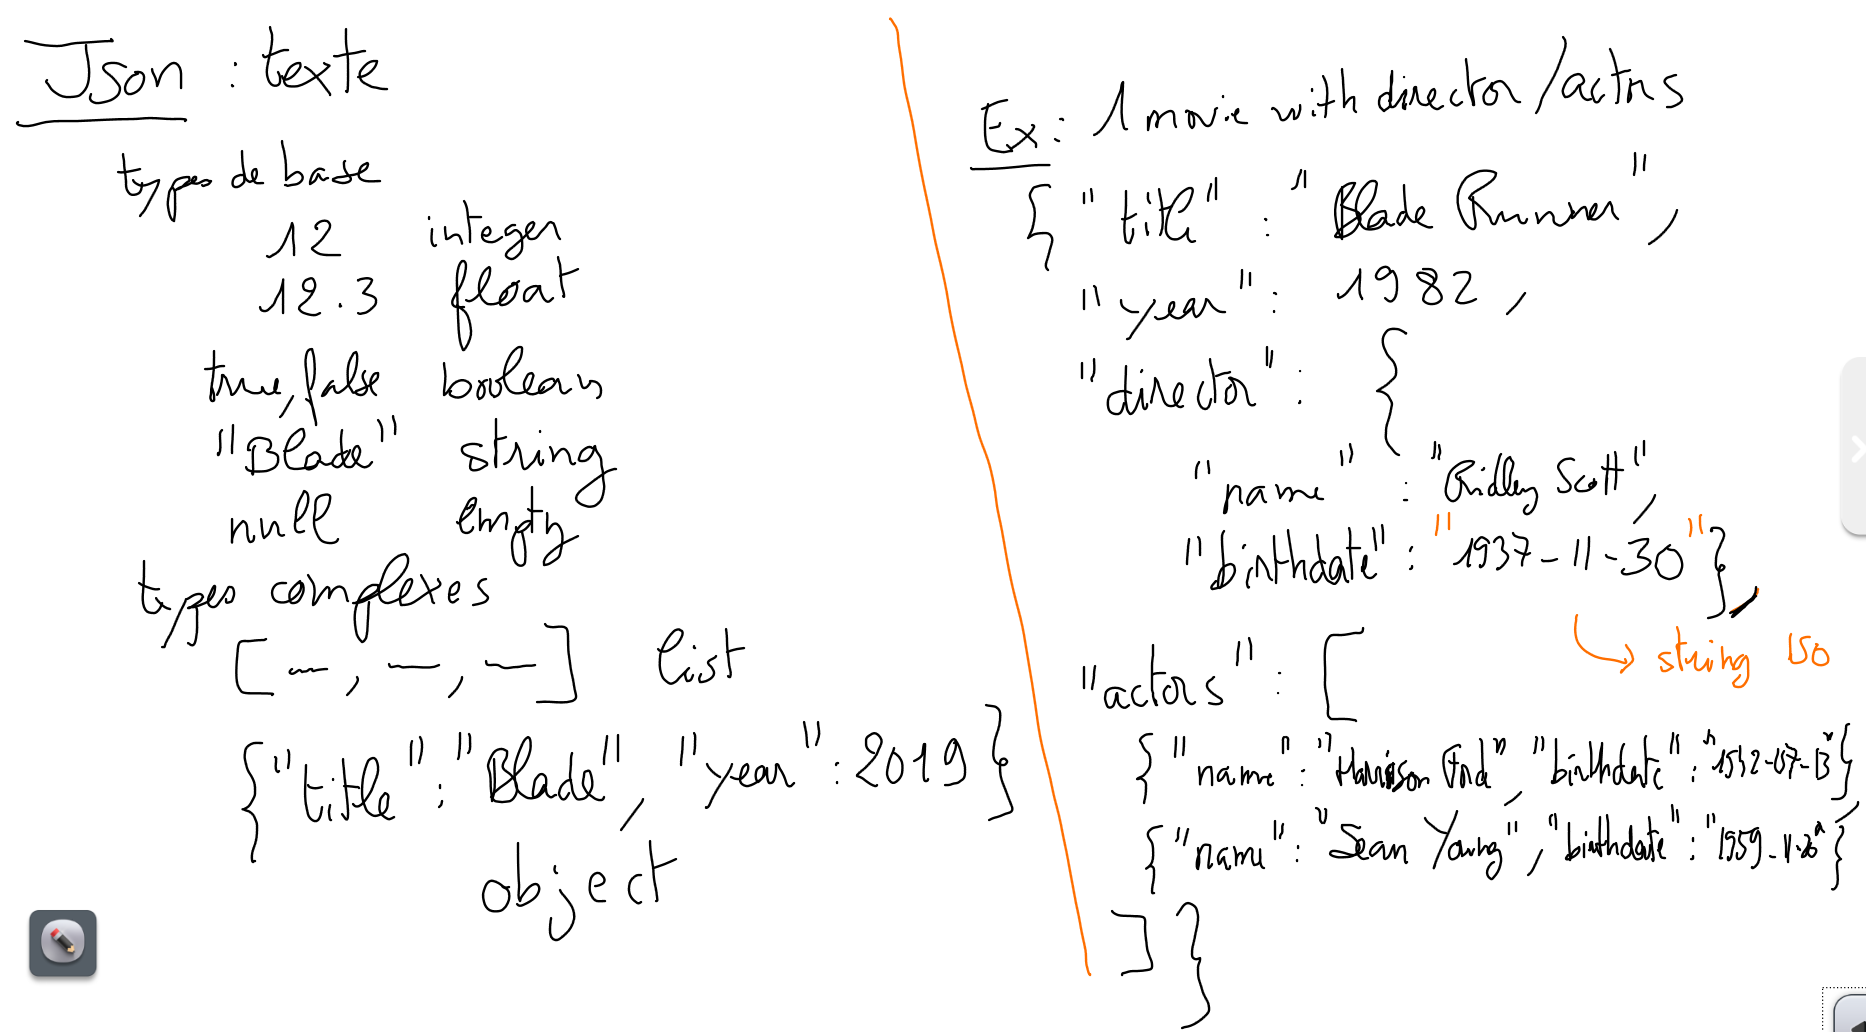 Json : texte
types de base
12 integer
12.3 float
true, false boolean
"Blade" string
null empty
types complexes
[ — , — , — ] list
{"title" : "Blade", "year" : 2019}
object
Ex : 1 movie with director / actors
{ "title" : "Blade Runner",
"year" : 1982 ,
"director" : {
"name" : "Ridley Scott",
"birthdate" : "1937-11-30"},
→ string ISO
"actors" : [
{"name" : "Harrison Ford", "birthdate" : "1942-07-13"},
{"name" : "Sean Young", "birthdate" : "1959-11-20"}
] }